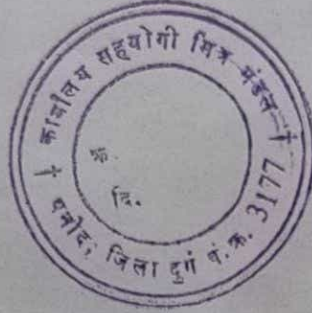 † कार्यालय सहयोगी मित्र मंडल †
धनोद, जिला दुर्ग पं.क्र. 3177
क्र.
दि.